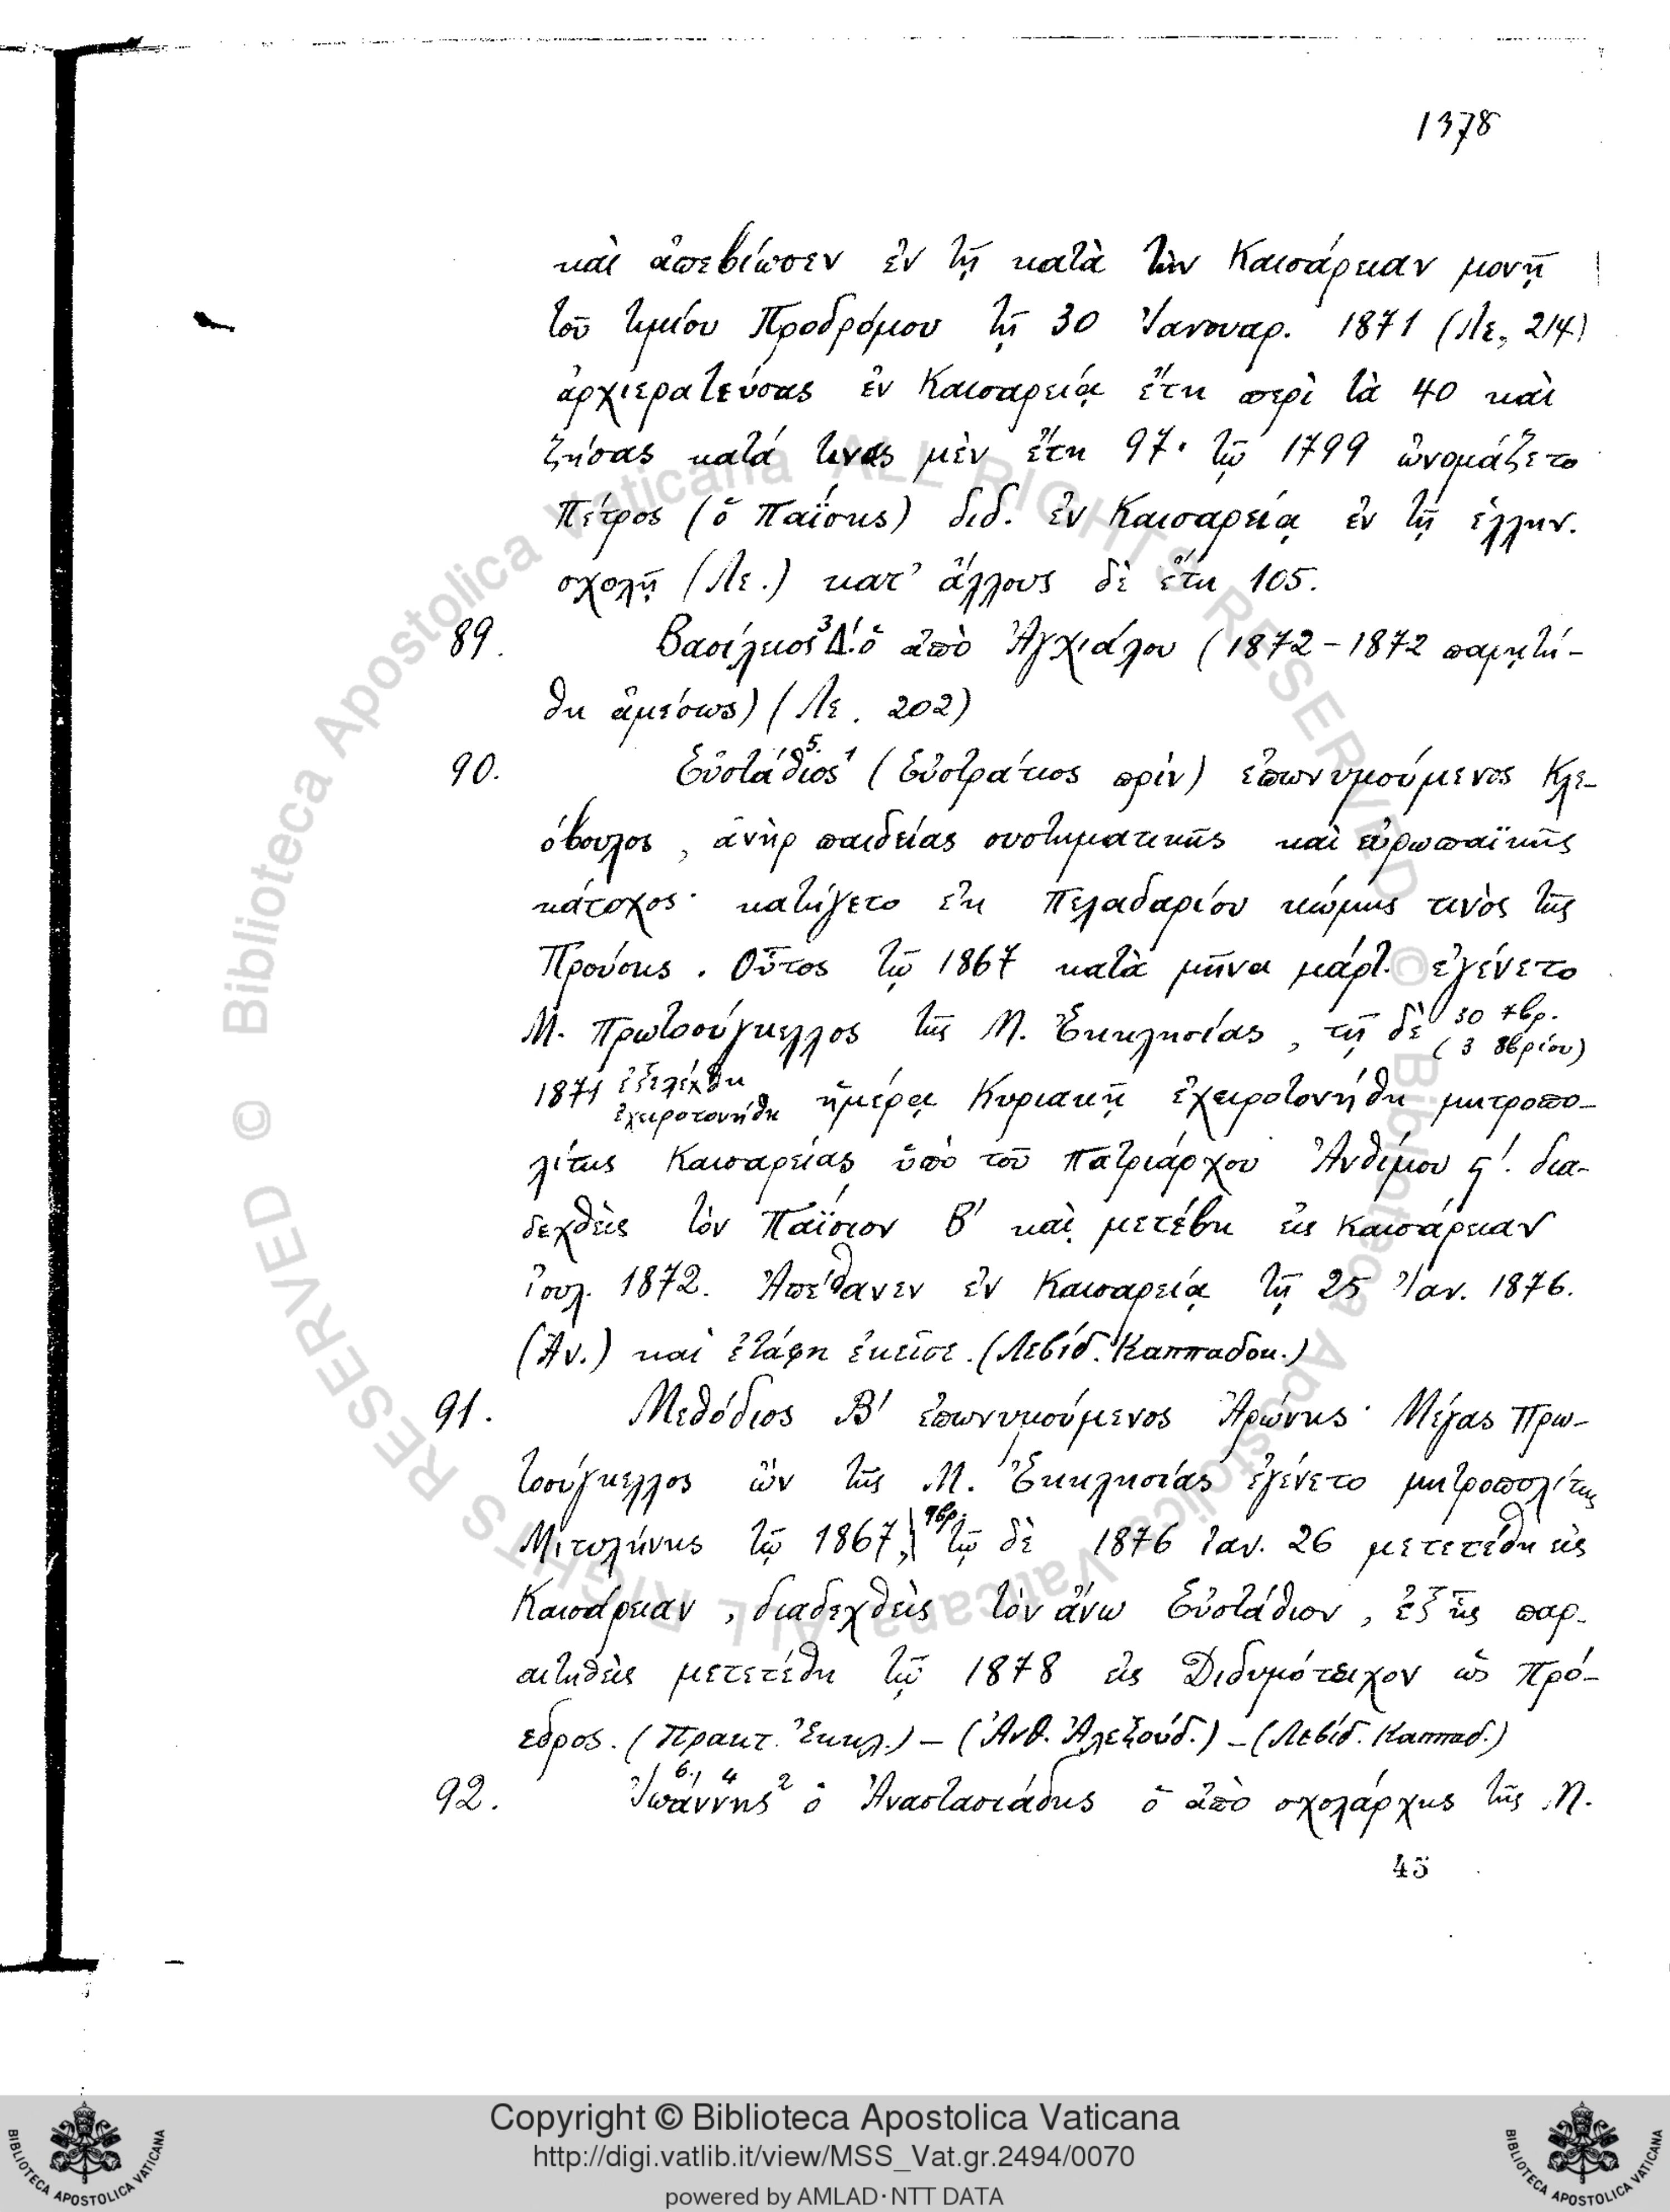 1378
καὶ ἀπεβίωσεν ἐν τῇ κατὰ τὴν Καισάρειαν μονῇ
τοῦ τιμίου Προδρόμου τῇ 30 Ἰανουαρ. 1871 (Λε. 214)
ἀρχιερατεύσας ἐν Καισαρείᾳ ἔτη περὶ τὰ 40 καὶ
ζήσας κατά τινας μὲν ἔτη 97· τῷ 1799 ὠνομάζετο
Πέτρος (ὁ Παΐσης) διδ. ἐν Καισαρείᾳ ἐν τῇ ἑλλην.
σχολῇ (Λε.) κατ' ἄλλους δὲ ἔτη 105.
89. Βασίλειος 3 Δ'. ὁ ἀπὸ Ἀγχιάλου (1872-1872 παρῃτή-
θη ἀμέσως) (Λε. 202)
90. Εὐστάθιος 5. 1 (Εὐστράτιος πρίν) ἐπωνυμούμενος Κλε-
όβουλος, ἀνὴρ παιδείας συστηματικῆς καὶ εὐρωπαϊκῆς
κάτοχος· κατήγετο ἐκ Πελαδαρίου κώμης τινὸς τῆς
Προύσης. Οὗτος τῷ 1867 κατὰ μῆνα μάρτ. ἐγένετο
Μ. Πρωτοσύγκελλος τῆς Μ. Ἐκκλησίας, τῇ δὲ 30 7βρ.
(3 8βρίου)
1871 ἐξελέχθη
ἐχειροτονήθη ἡμέρᾳ Κυριακῇ ἐχειροτονήθη μητροπο-
λίτης Καισαρείας ὑπὸ τοῦ Πατριάρχου Ἀνθίμου ϛ'. δια-
δεχθεὶς τὸν Παΐσιον Β' καὶ μετέβη εἰς Καισάρειαν
Ἰουλ. 1872. Ἀπέθανεν ἐν Καισαρείᾳ τῇ 25 Ἰαν. 1876.
(Ἀν.) καὶ ἐτάφη ἐκεῖσε. (Λεβίδ. Καππαδοκ.)
91. Μεθόδιος Β' ἐπωνυμούμενος Ἀρώνης· Μέγας Πρω-
τοσύγκελλος ὢν τῆς Μ. Ἐκκλησίας ἐγένετο μητροπολίτης
Μιτυλήνης τῷ 1867, 7βρ. τῷ δὲ 1876 Ἰαν. 26 μετετέθη εἰς
Καισάρειαν, διαδεχθεὶς τὸν ἄνω Εὐστάθιον, ἐξ ἧς παρ-
αιτηθεὶς μετετέθη τῷ 1878 εἰς Διδυμότειχον ὡς πρό-
εδρος. (Πρακτ. Ἐκκλ.) - (Ἀνθ. Ἀλεξούδ.) - (Λεβίδ. Καππαδ.)
92. Ἰωάννης 6., 4 2 ὁ Ἀναστασιάδης ὁ ἀπὸ σχολάρχης τῆς Μ.
45
© Biblioteca Apostolica Vaticana ALL RIGHTS RESERVED © Biblioteca Apostolica Vaticana ALL RIGHTS RESERVED
Copyright © Biblioteca Apostolica Vaticana
http://digi.vatlib.it/view/MSS_Vat.gr.2494/0070
powered by AMLAD·NTT DATA
BIBLIOTECA APOSTOLICA VATICANA
BIBLIOTECA APOSTOLICA VATICANA